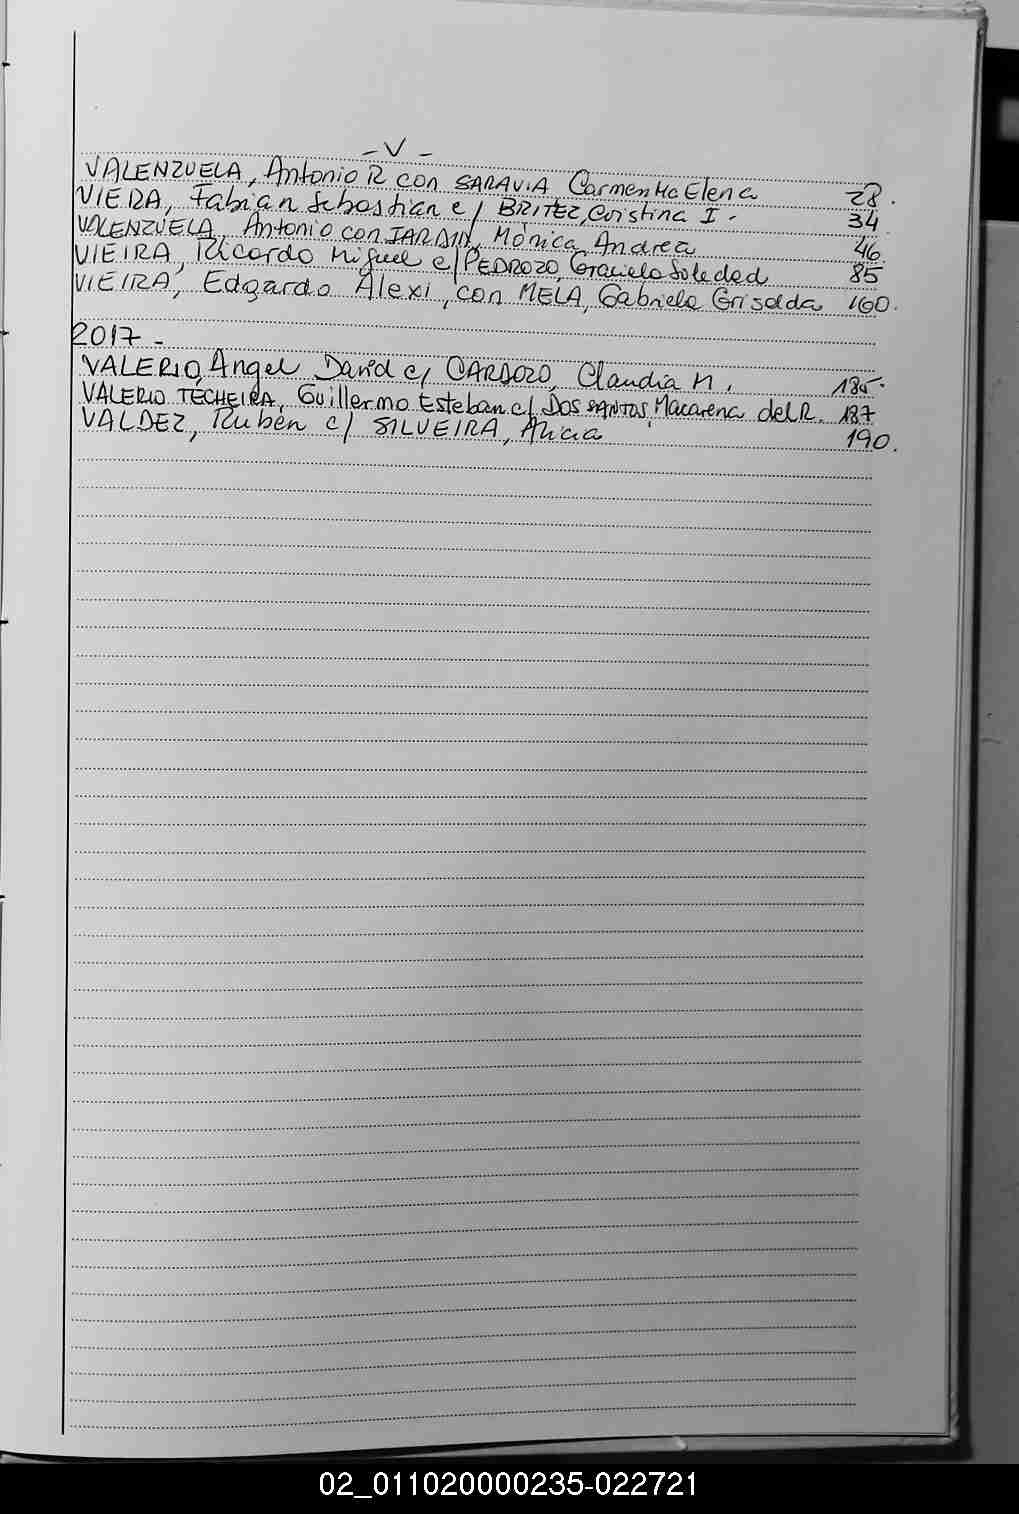 - V -
VALENZUELA, Antonio R con SARAVIA Carmen Ma Elena 28.
VIERA, Fabián Sebastian c/ BRITEZ, Cristina I. 34
VALENZUELA, Antonio con JARDIN, Mónica Andrea 46
VIEIRA, Ricardo Miguel c/ PEDROZO, Graciela Soledad 85
VIEIRA, Edgardo Alexi, con MELA, Gabriela Griselda 160.
2017 -
VALERIO, Angel David c/ CARDOZO, Claudia M. 185.
VALERIO TECHEIRA, Guillermo Esteban c/ DOS SANTOS, Macarena del R. 187
VALDEZ, Rubén c/ SILVEIRA, Alicia 190.
02_011020000235-022721